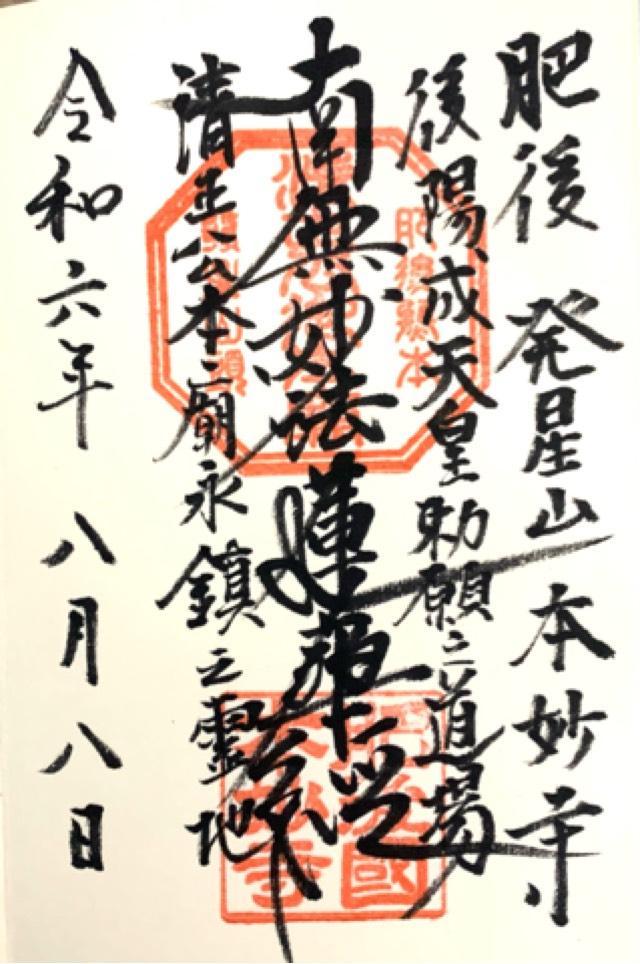 肥後 発星山 本妙寺
後陽成天皇勅願之道場
南無妙法蓮華経
清正公本廟永鎮之霊地
令和六年 八月八日
肥後熊本